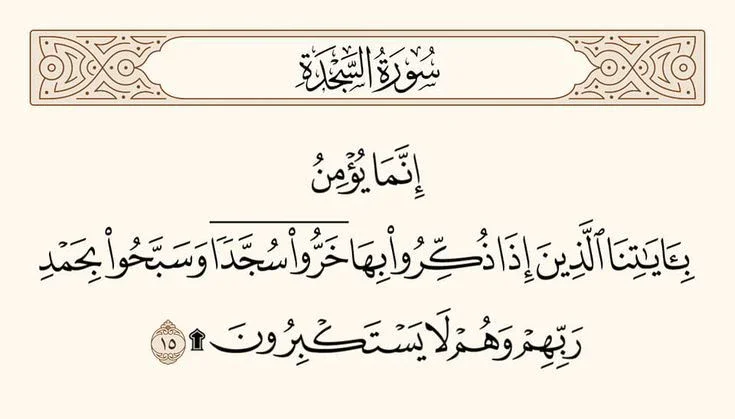 سُورَةُ السَّجْدَةِ
إِنَّمَا يُؤْمِنُ
بِـَٔايَٰتِنَا ٱلَّذِينَ إِذَا ذُكِّرُوا۟ بِهَا خَرُّوا۟ سُجَّدًا وَسَبَّحُوا۟ بِحَمْدِ
رَبِّهِمْ وَهُمْ لَا يَسْتَكْبِرُونَ ۩ ١٥